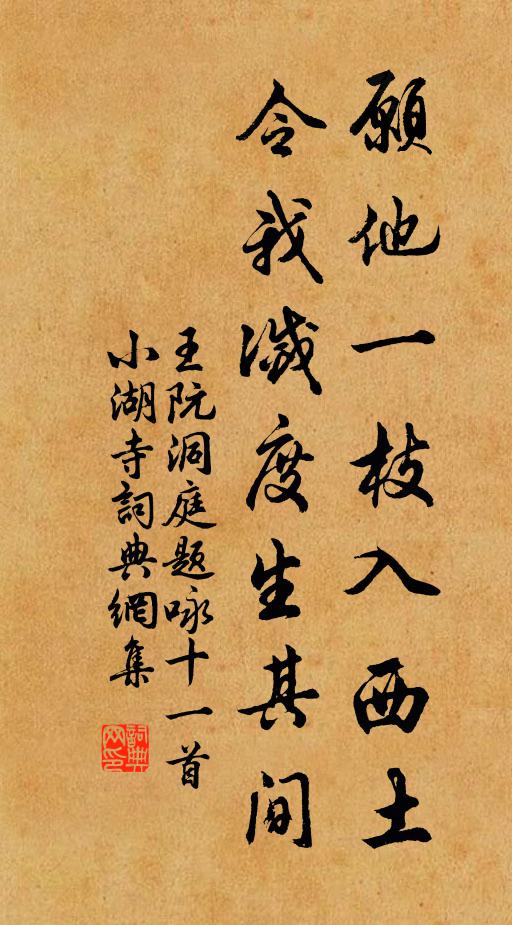 願他一枝入西土
令我滅度生其間
王阮洞庭题咏十一首
小湖寺詞典網集
詞典網印